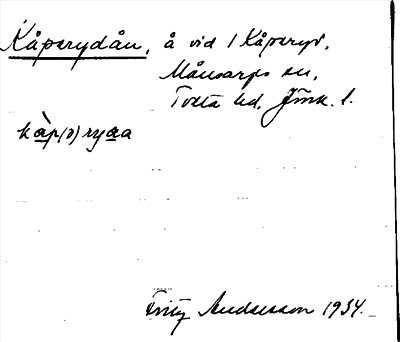 Kåperydån, å vid 1 Kåperyd,
Månsarps sn,
Tveta hd, Jönk. l.
kàp(ə)rydaa
Fritz Andersson 1934.